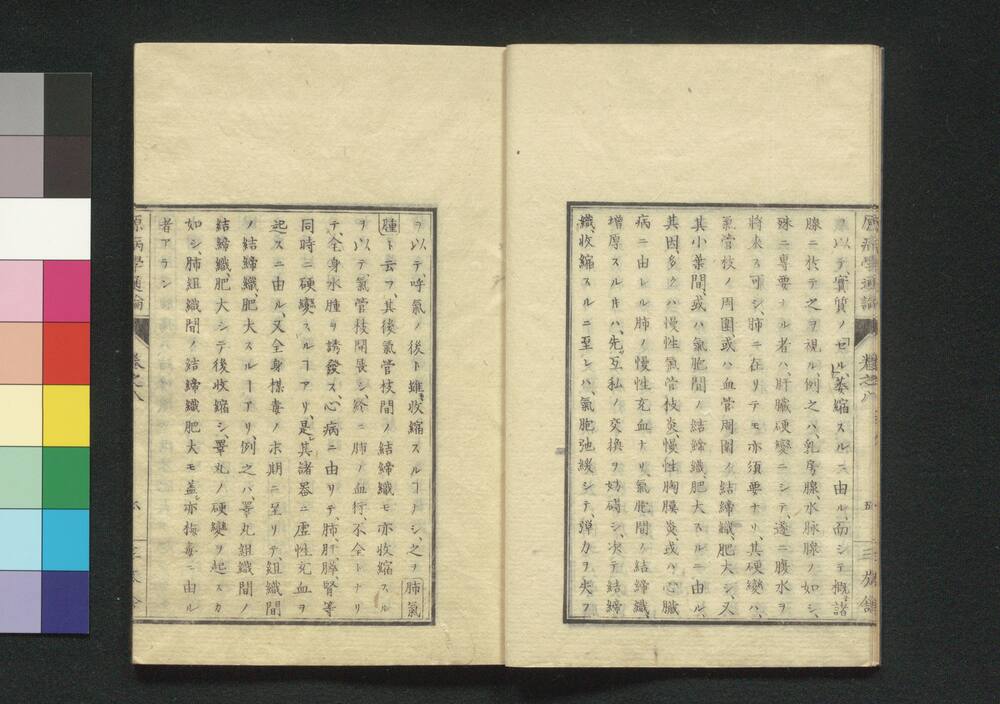 原病學通論 卷之八 五 三族舘
ヲ以テ、實質ノセル、萎縮スルニ由ル、而シテ概、諸
腺ニ於テ之ヲ視ル、例之ハ、乳房腺、水脉腺ノ如シ、
殊ニ専要ナル者ハ、肝臓硬變ニシテ、遂ニ腹水ヲ
將來ス可シ、肺ニ在リテモ亦須要ナリ、其硬變ハ、
氣管枝ノ周圍或ハ血管周圍ノ結締織、肥大シ、又
其小葉間、或ハ氣胞間ノ結締織肥大スルニ由ル、
其因、多クハ慢性氣管枝炎、慢性胸膜炎、或ハ心臓
病ニ由レル肺ノ慢性充血ナリ、氣胞間ノ結締織、
増厚スル片ハ、先、互私ノ交換ヲ妨碍シ、次テ結締
織、收縮スルニ至レハ、氣胞弛緩シテ、彈力ヲ失フ
ヲ以テ、呼氣ノ後ト雖、收縮スルヿナシ、之ヲ肺氣
腫ト云フ、其後氣管枝間ノ結締織モ亦收縮スル
ヲ以テ、氣管枝開展シ、終ニ肺ノ血行、不全トナリ
テ、全身水腫ヲ誘發ス、心病ニ由リテ、肺、肝、脾、腎等
同時ニ硬變スルヿアリ、是、其諸器ニ虚性充血ヲ
起スニ由ル、又全身黴毒ノ末期ニ至リテ、組織間
ノ結締織、肥大スルヿアリ、例之ハ、睾丸組織間ノ
結締織、肥大シテ後收縮シ、睾丸ノ硬變ヲ起スカ
如シ、肺組織間ノ結締織肥大モ、蓋、亦梅毒ニ由ル
者アラン
原病學通論 卷之八